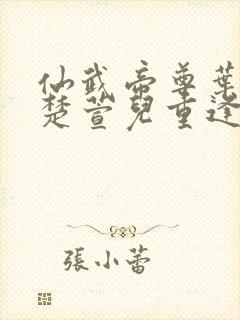 仙武帝尊葉
楚萱兒重逢
張小蕾